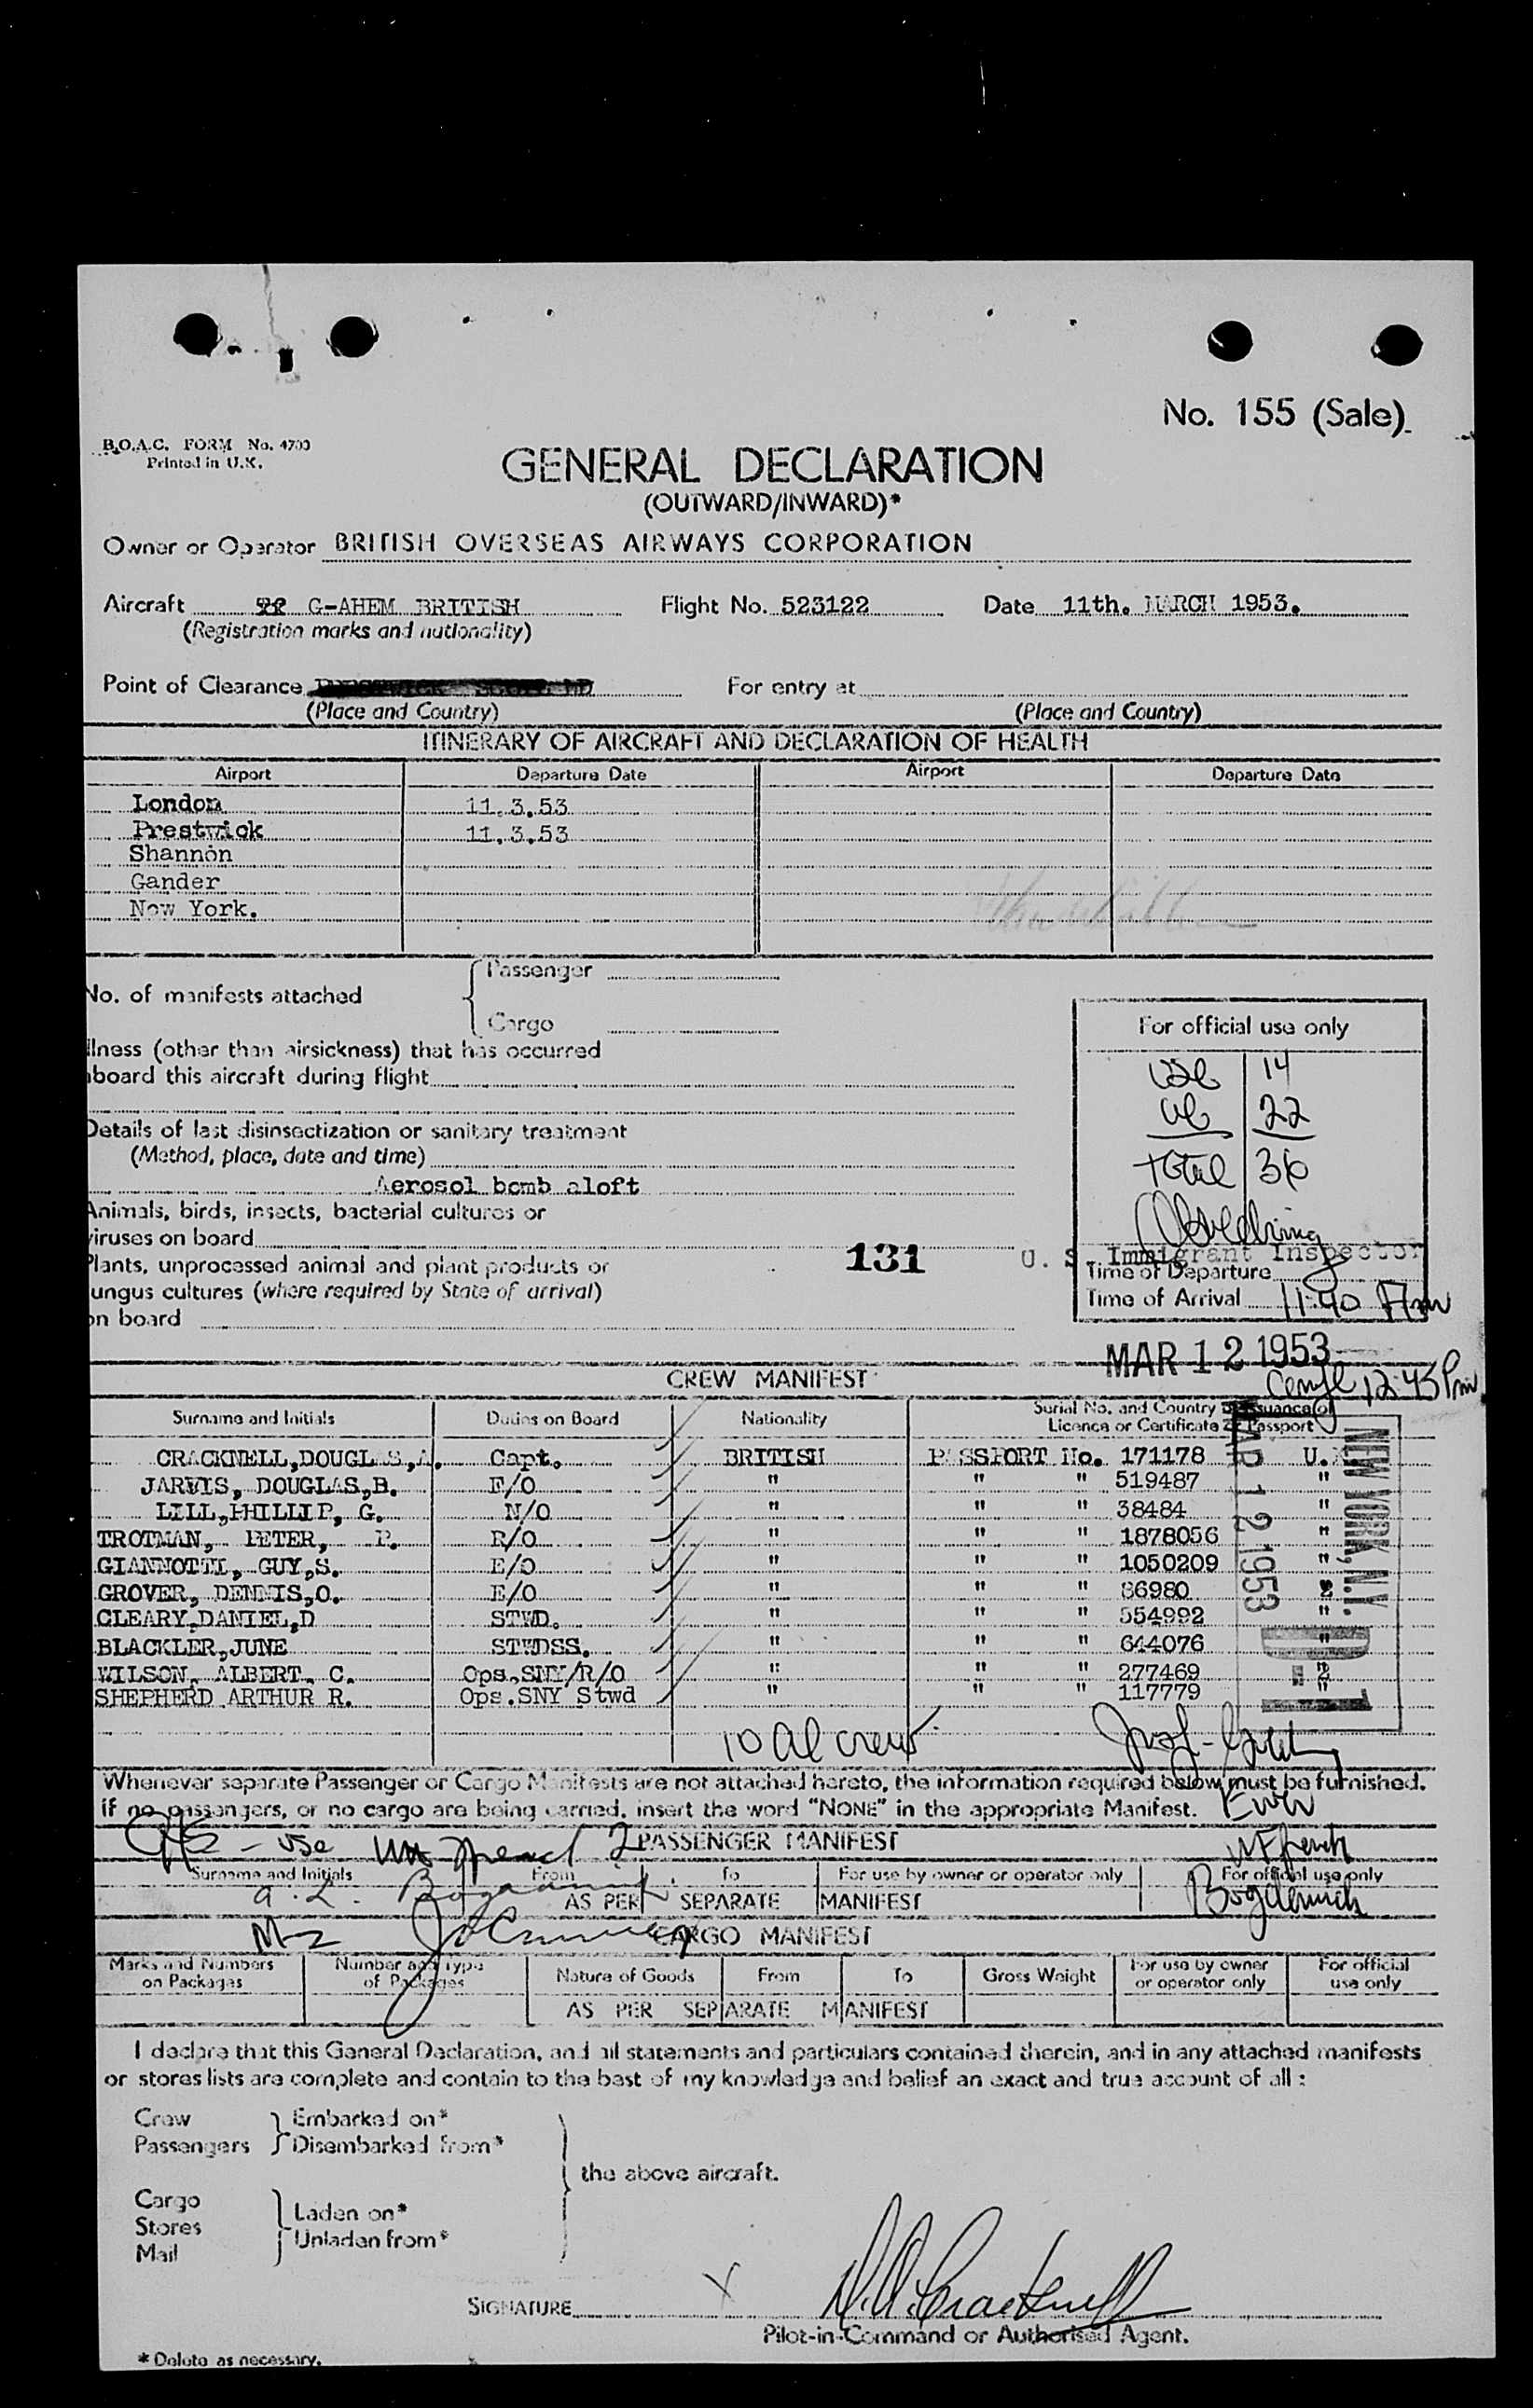 No. 155 (Sale)
B.O.A.C. FORM No. 4703
Printed in U.K.
GENERAL DECLARATION
(OUTWARD/INWARD)*
Owner or Operator BRITISH OVERSEAS AIRWAYS CORPORATION
Aircraft G-AHEM BRITISH Flight No. 523122 Date 11th. MARCH 1953.
(Registration marks and nationality)
Point of Clearance For entry at
(Place and Country) (Place and Country)
ITINERARY OF AIRCRAFT AND DECLARATION OF HEALTH
Airport Departure Date Airport Departure Date
London 11.3.53
Prestwick 11.3.53
Shannon
Gander
New York.
Passenger
No. of manifests attached
Cargo
For official use only
llness (other than airsickness) that has occurred
aboard this aircraft during flight
USC 14
UC 22
Total 36
Details of last disinsectization or sanitary treatment
(Method, place, date and time)
Aerosol bomb aloft
Animals, birds, insects, bacterial cultures or
viruses on board
131
U. S. Immigrant Inspector
Plants, unprocessed animal and plant products or
Time of Departure
ungus cultures (where required by State of arrival)
Time of Arrival 11:40 Am
on board
MAR 12 1953
12:45 Pm
CREW MANIFEST
Surname and Initials Duties on Board Nationality Serial No. and Country of Issuance of
Licence or Certificate or Passport
CRACKNELL,DOUGLAS,A. Capt. BRITISH PASSPORT No. 171178 U.K
JARVIS, DOUGLAS,B. F/O " " " 519487 "
LILL,PHILLIP, G. N/O " " " 38484 "
TROTMAN, PETER, P. R/O " " " 1878056 "
GIANNOTTI, GUY,S. E/O " " " 1050209 "
GROVER, DENNIS,O. E/O " " " 86980
CLEARY,DANIEL,D STWD. " " " 554992 "
BLACKLER,JUNE STWDSS. " " " 644076 "
WILSON, ALBERT, C. Ops.SNY/R/O " " " 277469
SHEPHERD ARTHUR R. Ops.SNY Stwd " " " 117779 "
NEW YORK, N.Y.
MAR 12 1953
10 al crew
Whenever separate Passenger or Cargo Manifests are not attached hereto, the information required below must be furnished.
if no passengers, or no cargo are being carried, insert the word "NONE" in the appropriate Manifest.
PASSENGER MANIFEST
Surname and Initials From To For use by owner or operator only For official use only
AS PER SEPARATE MANIFEST
CARGO MANIFEST
Marks and Numbers on Packages Number and Type of Packages Nature of Goods From To Gross Weight For use by owner or operator only For official use only
AS PER SEPARATE MANIFEST
I declare that this General Declaration, and all statements and particulars contained therein, and in any attached manifests
or stores lists are complete and contain to the best of my knowledge and belief an exact and true account of all :
Crew Embarked on*
Passengers Disembarked from*
the above aircraft.
Cargo
Stores Laden on*
Mail Unladen from*
SIGNATURE X D.A. Cracknell
Pilot-in-Command or Authorised Agent.
* Delete as necessary.